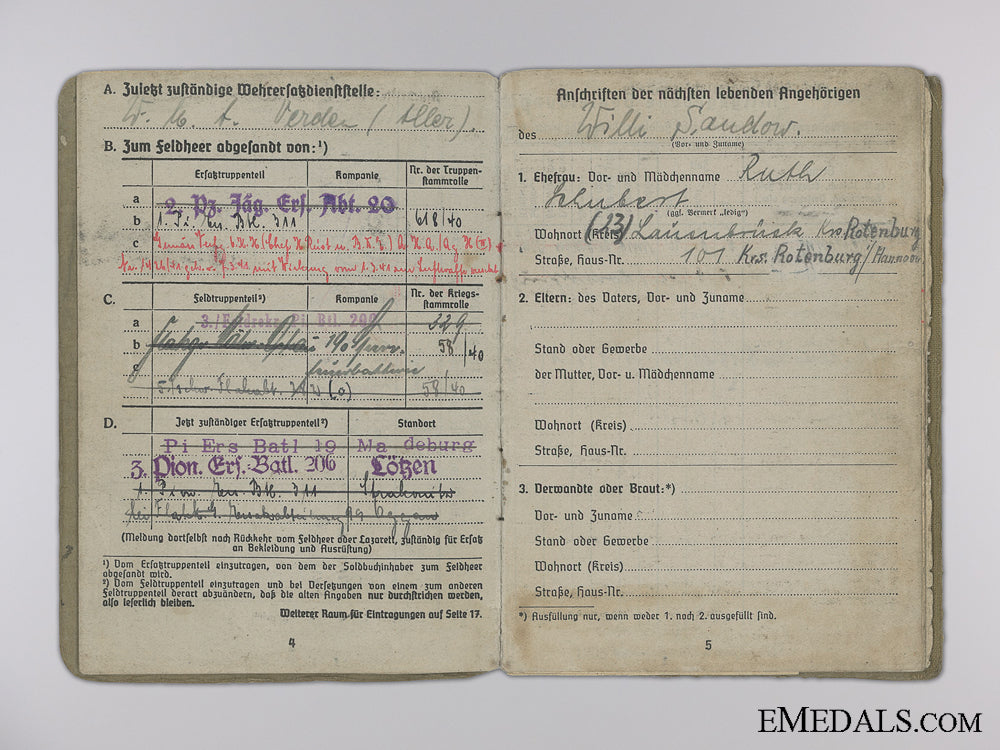 A. Zuletzt zuständige Wehrersatzdienststelle:
W. M. A. Verden (Aller).
B. Zum Feldheer abgesandt von:¹)
Ersatztruppenteil Kompanie Nr. der Truppenstammrolle
a 2. Pz. Jäg. Ers. Abt. 20
b 1. Pi. Btl. 311 618/40
c
C. Feldtruppenteil²) Kompanie Nr. der Kriegsstammrolle
a 3./ Pi Btl. 200 329
b 58/40
c
58/40
D. Jetzt zuständiger Ersatztruppenteil²) Standort
Pi Ers Batl 19 Ma deburg
3. Pion. Ers.-Batl. 206 Lötzen
1. Pion. Btl. 311
(Meldung dortselbst nach Rückkehr vom Feldheer oder Lazarett, zuständig für Ersatz
an Bekleidung und Ausrüstung)
¹) Vom Ersatztruppenteil einzutragen, von dem der Soldbuchinhaber zum Feldheer
abgesandt wird.
²) Vom Feldtruppenteil einzutragen und bei Versetzungen von einem zum anderen
Feldtruppenteil derart abzuändern, daß die alten Angaben nur durchstrichen werden,
also leserlich bleiben.
Weiterer Raum für Eintragungen auf Seite 17.
4
Anschriften der nächsten lebenden Angehörigen
des Willi Sandow.
(Vor- und Zuname)
1. Ehefrau: Vor- und Mädchenname Ruth
Schubert
(ggf. Vermerk „ledig“)
Wohnort (Kreis) (23) Lauenbrück Krs. Rotenburg
Straße, Haus-Nr. 101 Krs. Rotenburg/Hannover
2. Eltern: des Vaters, Vor- und Zuname
Stand oder Gewerbe
der Mutter, Vor- u. Mädchenname
Wohnort (Kreis)
Straße, Haus-Nr.
3. Verwandte oder Braut:*)
Vor- und Zuname
Stand oder Gewerbe
Wohnort (Kreis)
Straße, Haus-Nr.
*) Ausfüllung nur, wenn weder 1. noch 2. ausgefüllt sind.
5
EMEDALS.COM